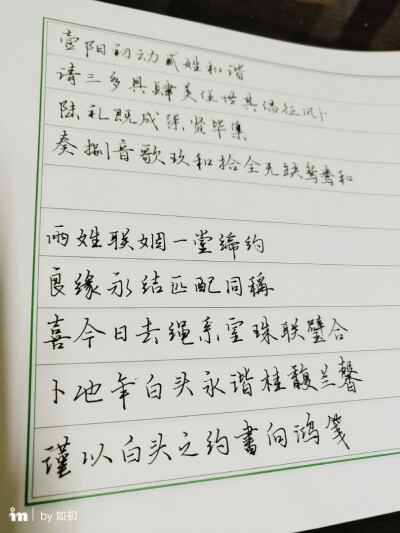 壹阳初动贰姓和谐
请三多具肆美伍世其倡征凤卜
陆礼既成柒贤毕集
奏捌音歌玖和拾全无缺鸳鸯和
两姓联姻一堂缔约
良缘永结匹配同稱
喜今日去绳系定珠联璧合
卜他年白头永谐桂馥兰馨
瑾以白头之约書向鸿笺
in | by 如初